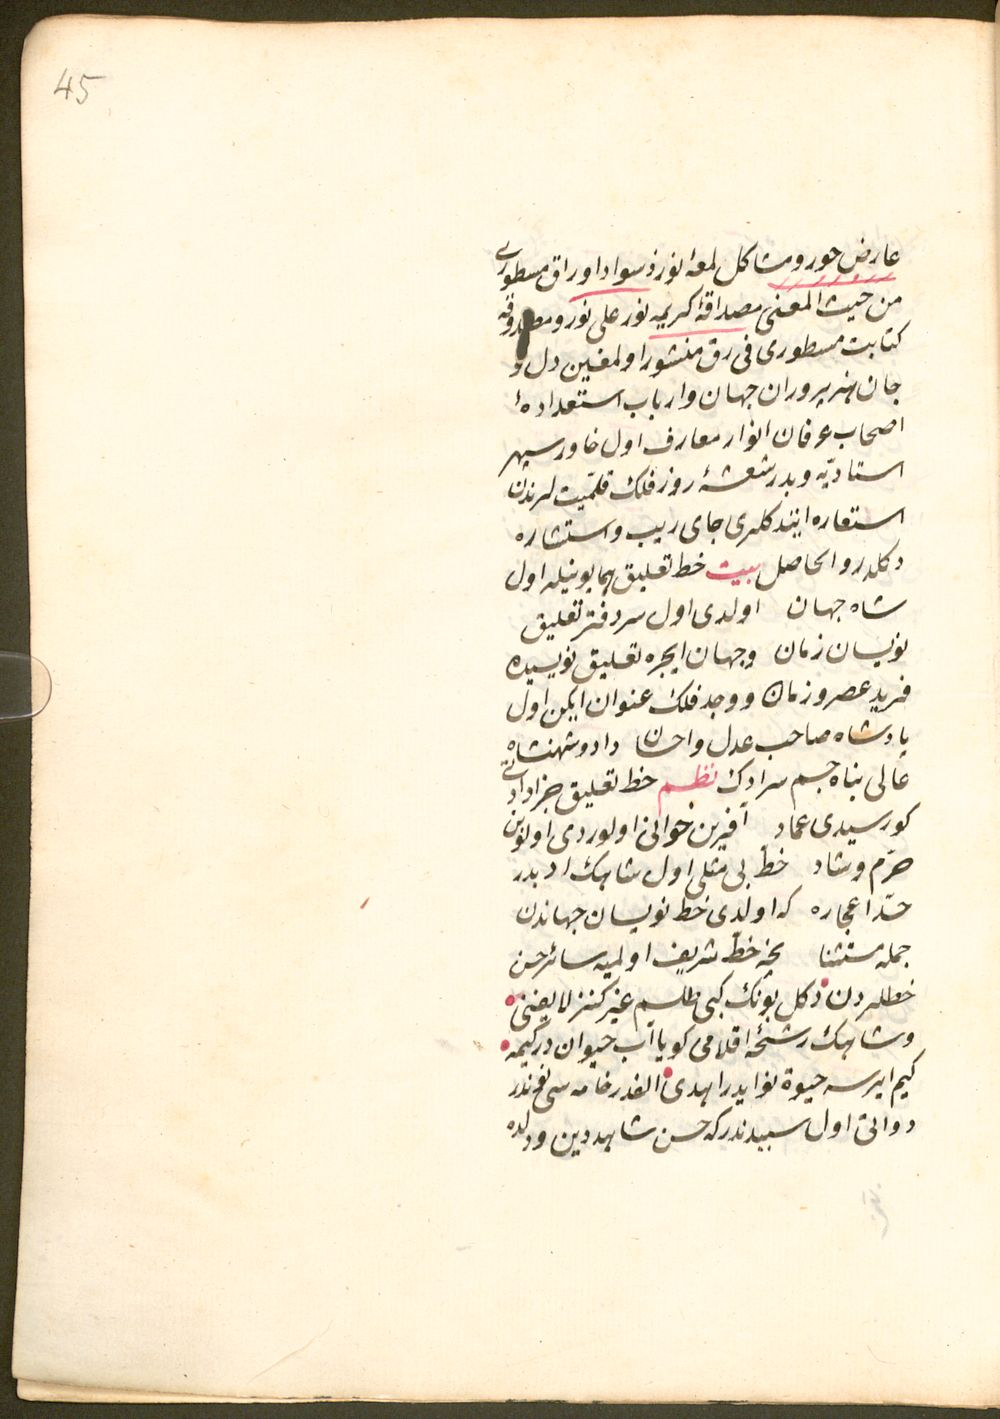 45
عارض حور و مشاكل لمعهٔ نور ذ سواد اوراق مسطوری
من حيث المعنى مصداقهٔ كريمهٔ نور على نور و مصدوقهٔ
كتابت مسطورى فى رق منشور اولمغين دل و
جان هنرپروران جهان وارباب استعداده
اصحاب عرفان انوار معارف اول خاور سپهر
استاديّه وبدر شعشهٔ روز فلك قلمّيت لرندن
استعاره ايتدكلرى جاى ريب و استشاره
دكلدر والحاصل بيت خط تعليق همايونيله اول
شاه جهان اولدى اول سردفتر تعليق
نويسان زمان وجهان ايچره تعليق نويسيده
فريد عصر و زمان و وحيد فلك عنوان ايكن اول
پادشاه صاحب عدل واحسان داد و شهنشاه
عالى پناه جم سرادك نظم خط تعليق
كورسيدى عماد آفرين خوانى اولوردى اولوبن
خرّم وشاد خطّ بى مثلى اول شاهك ادبدر
حدّ اعجازه كه اولدى خط نويسان جهاندن
جمله مستثنا نجه خطّ شريف اولميه سائر حسن
خطلردن دكل بونك كبى طلسم غير كنز لايفنى
وشاهك رشحهٔ اقلامى كويا آب حيوان دركيمه
كيم ايرسه حيوة نوايدر اهدى القدر خامه سى
دواتى اول سبيدندر كه حسن شاهددين ودلده